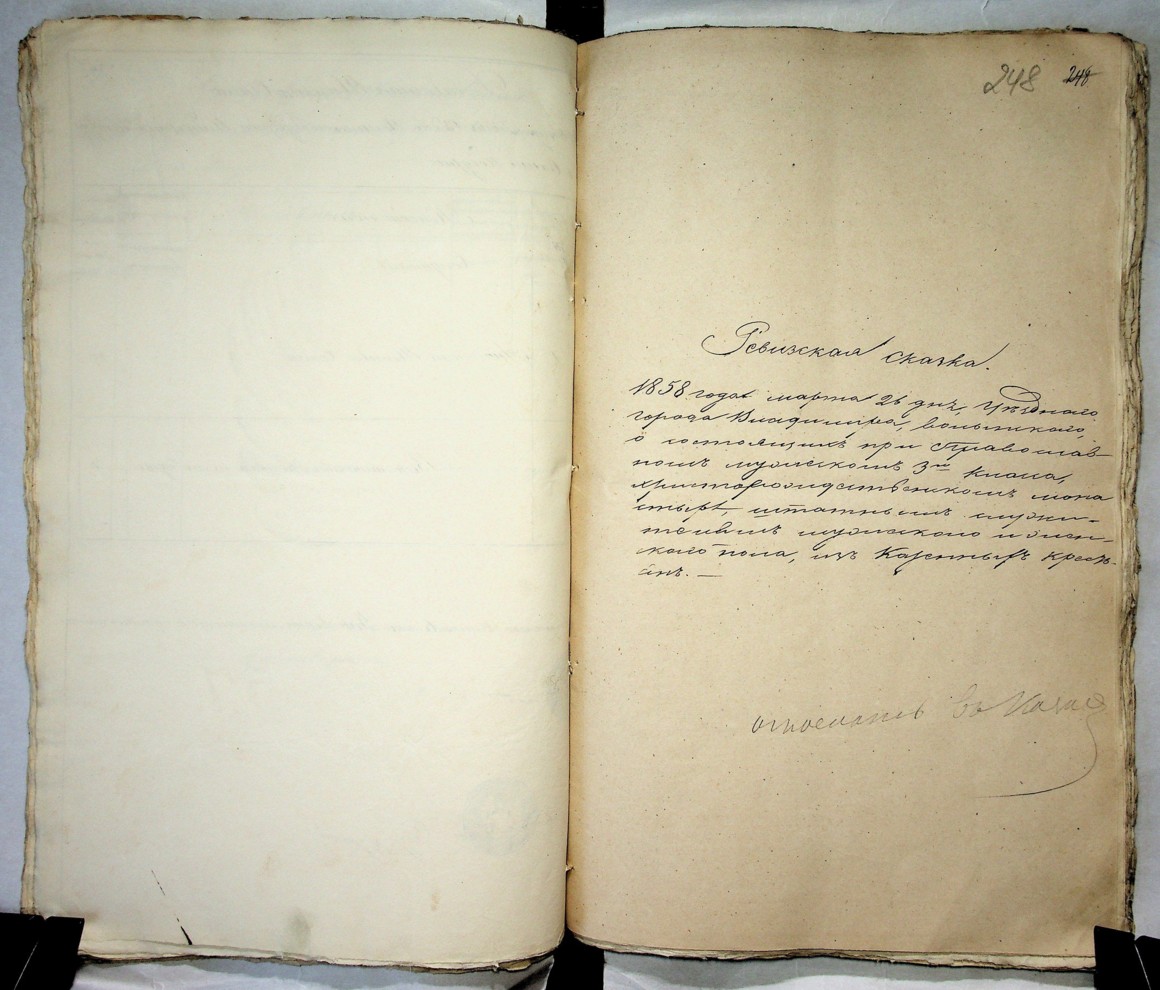 248 248
Ревизская сказка.
1858 года марта 26 дня, Уѣзднаго
города Владиміра, волынскаго,
о состоящихъ при Православ-
номъ мужескомъ 3го класса,
христорождественскомъ мона
стырѣ, штатнымъ служи-
телямъ мужескаго и жен-
скаго пола, изъ Казенныхъ крестъ-
янъ. —
отослать въ